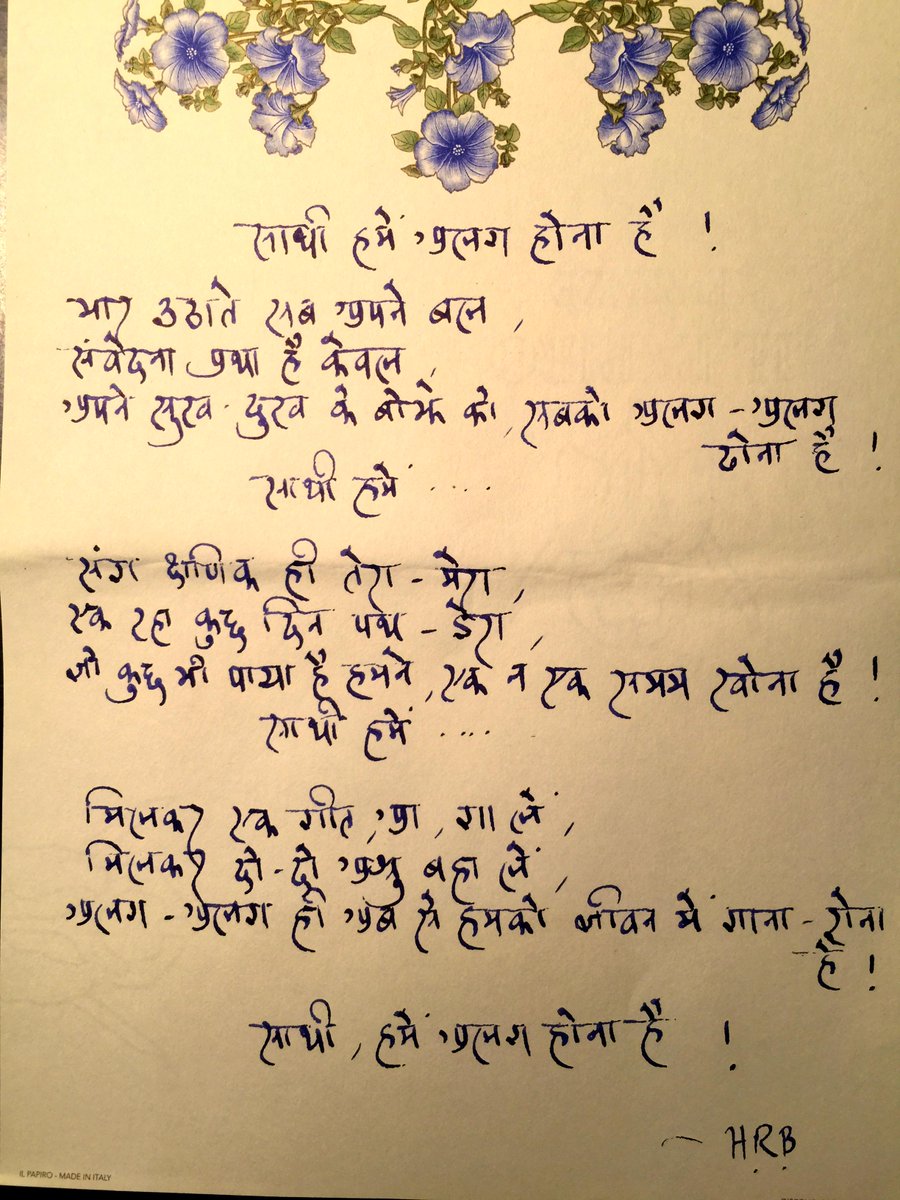 साथी हमें अलग होना है !
भार उठाते सब अपने बल,
संवेदना प्रथा है केवल,
अपने सुख-दुख के बोझे को, सबको अलग-अलग
ढोना है !
साथी हमें ....
संग क्षणिक ही तेरा-मेरा,
एक रहा कुछ दिन पथ-डेरा,
जो कुछ भी पाया है हमने, एक न एक समय खोना है !
साथी हमें ....
मिलकर एक गीत, आ, गा लें,
मिलकर दो-दो अश्रु बहा लें,
अलग-अलग ही अब से हमको जीवन में गाना-रोना
है !
साथी, हमें अलग होना है !
- HRB
IL PAPIRO - MADE IN ITALY